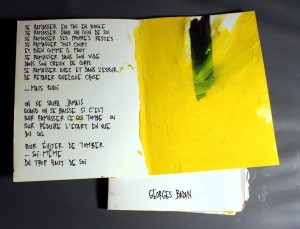 SE RAMASSER EN TAS EN BOULE
SE RAMASSER DANS UN COIN DE SOI
SE RAMASSER SES PROPRES RESTES
SE RAMASSER TOUT COURT
ET BIEN COMME IL FAUT
SE RAMASSER DANS SON VIDE
DANS SON CREUX DE CORPS
SE RAMASSER AVEC ET DANS L'ESPOIR
DE RÉPARER QUELQUE CHOSE
... MAIS QUOI
ON NE SAURA JAMAIS
QUAND ON SE BAISSE SI C'EST
POUR RAMASSER CE QUI TOMBE OU
POUR RÉDUIRE L'ÉCART EN VUE
DU SOL
POUR ÉVITER DE TOMBER
- SOI-MÊME
DU TROP HAUT DE SOI
GEORGES BADIN